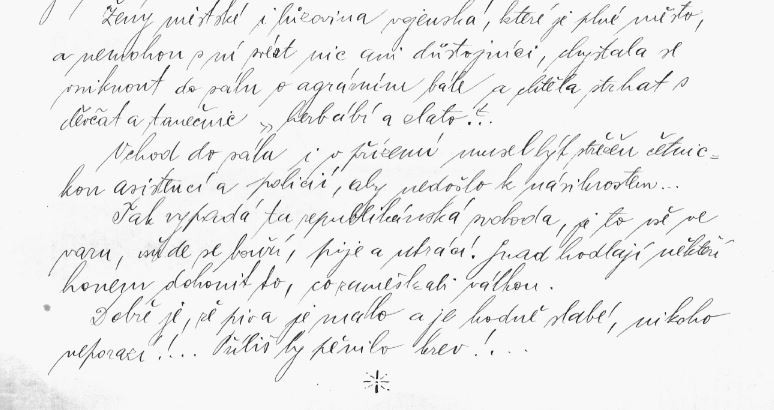 Ženy městské i lůzovina vojenská, které je plné město,
a nemohou s ní svést nic ani důstojníci, chystala se
vniknout do sálu o agrárním bále a chtěla strhat s
děvčat a tanečnic „hedbábí a zlato!..
Vchod do sálu i v přízemí musel býť střežen četnic=
kou asistencí a policií, aby nedošlo k násilnostem...
Tak vypadá ta republikánská svoboda, je to vše ve
varu, vše se bouří, pije a utrácí! Snad hodlají někteří
honem dohonit to, co zameškali válkou.
Dobře je, že piva je málo a je hodně slabé, nikoho
neporazí!!... Příliš by pěnilo krev!...